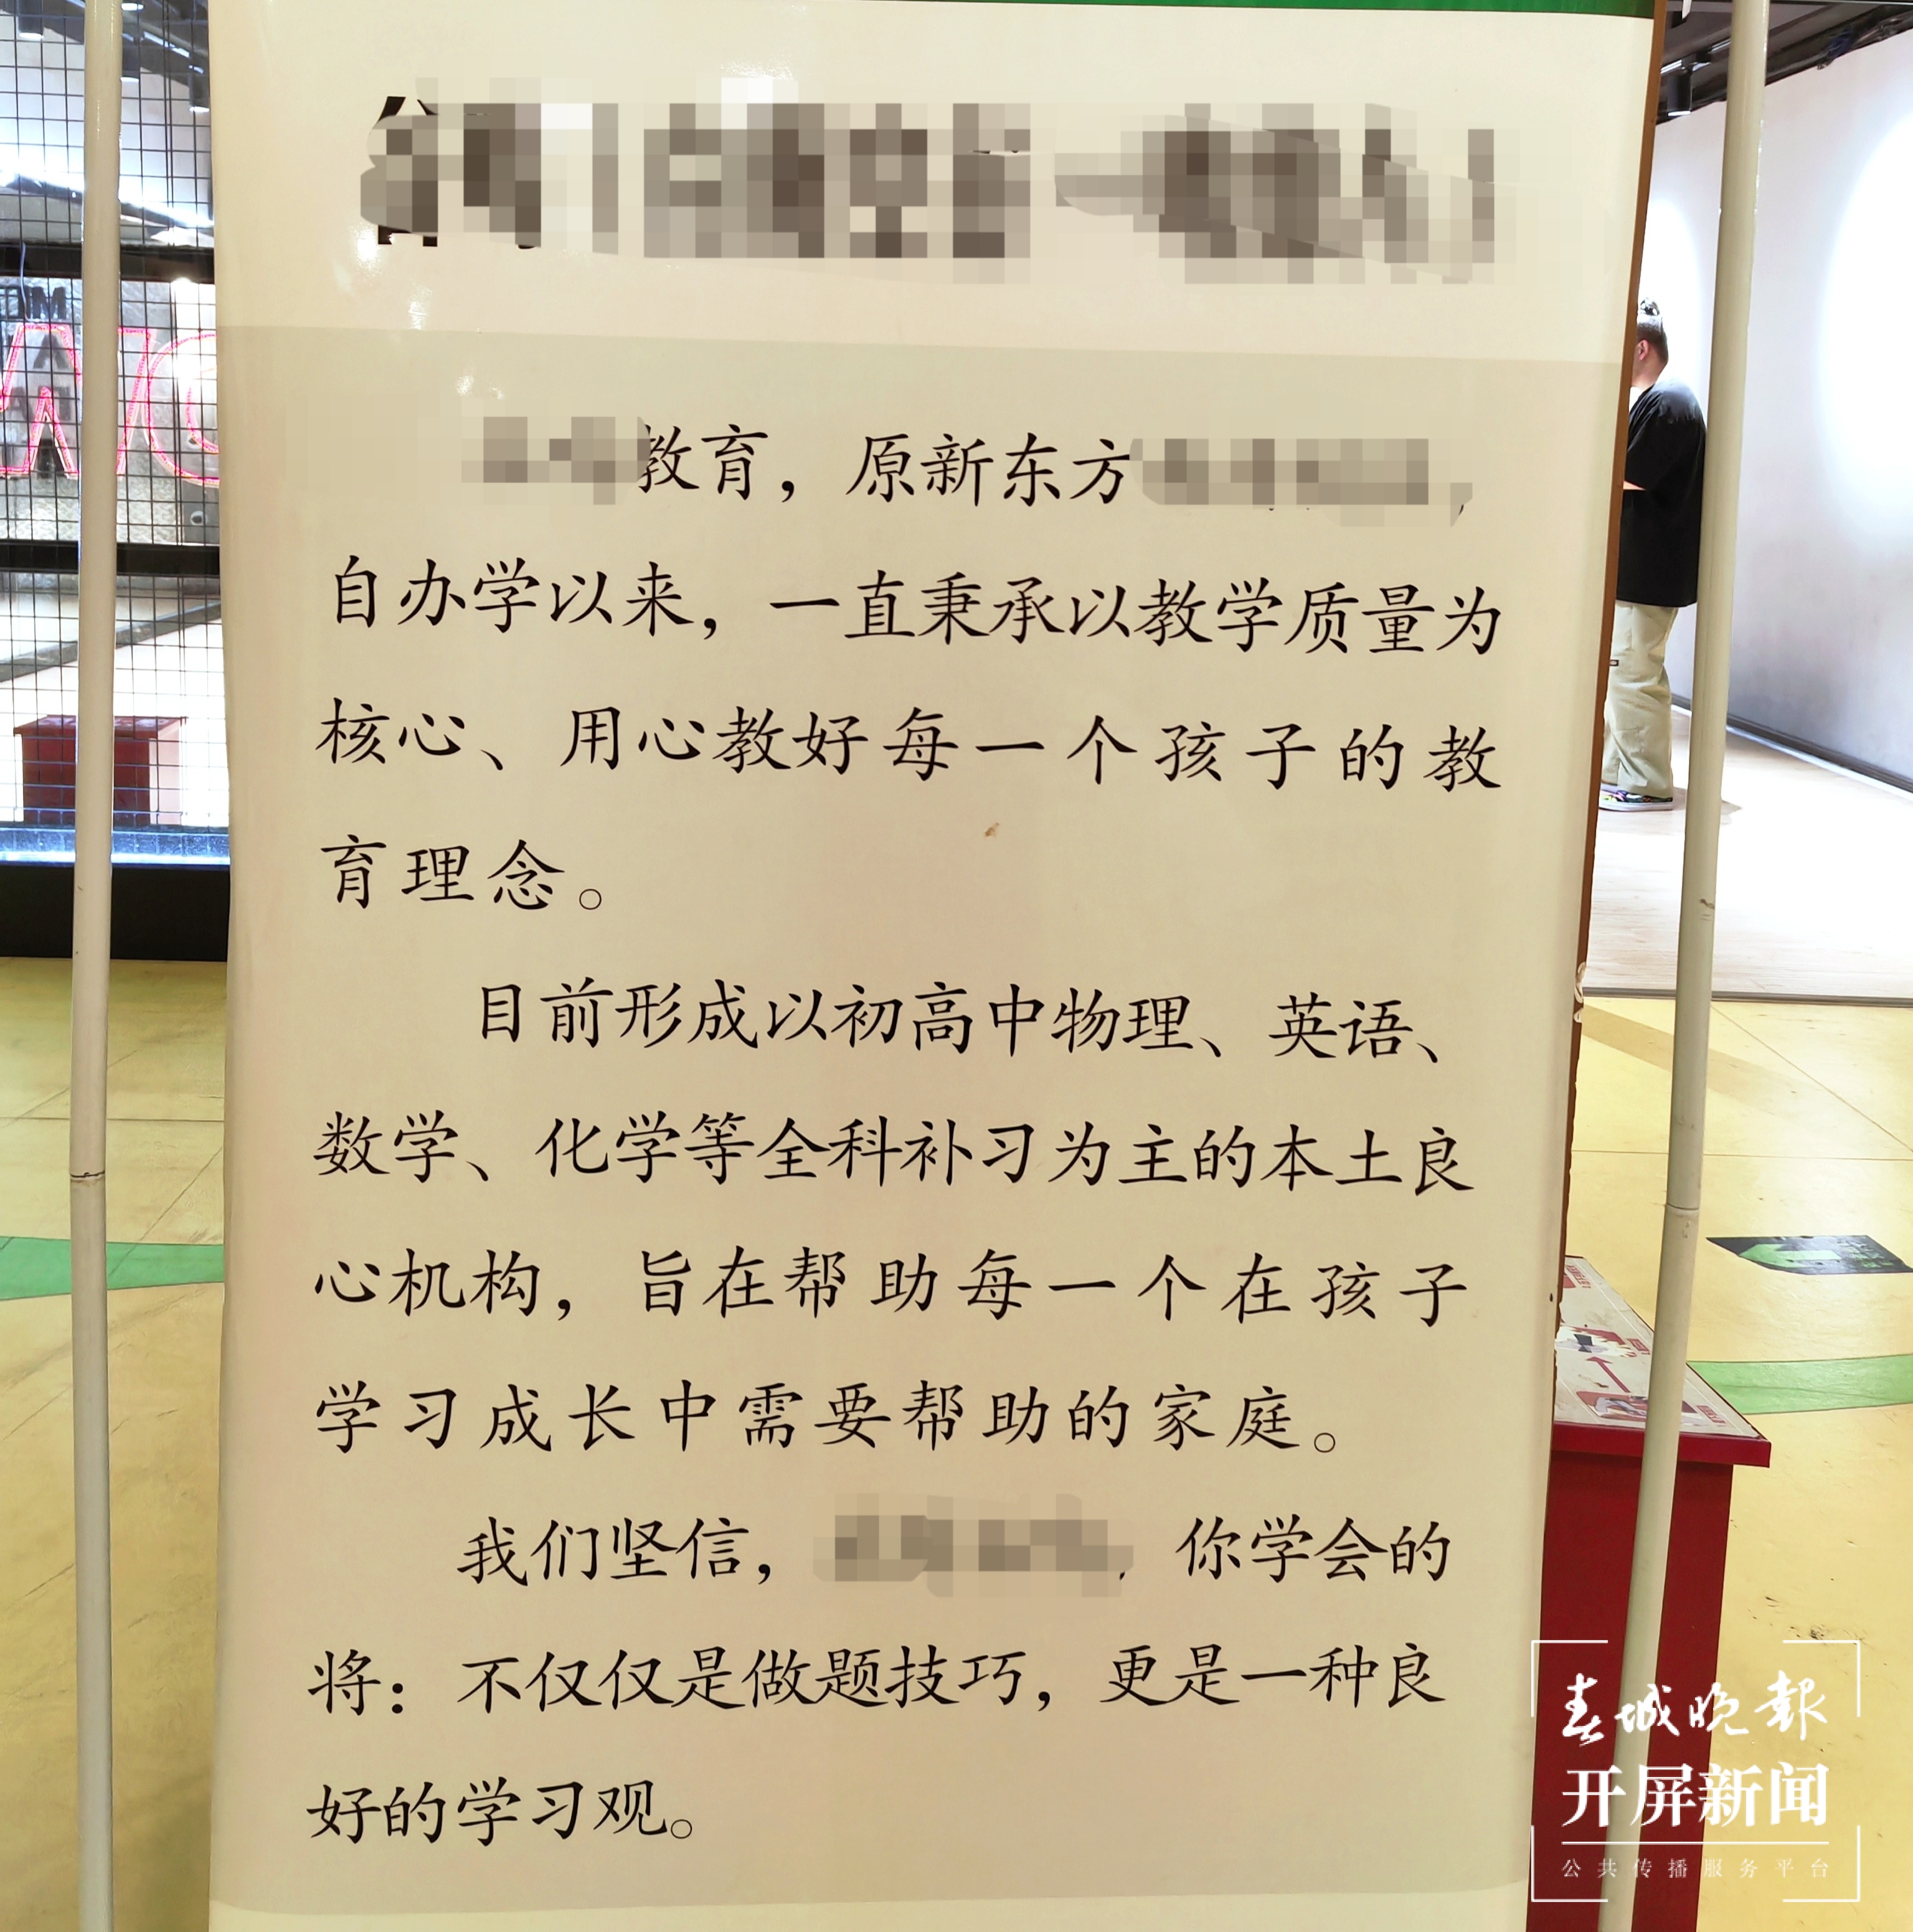 教育，原新东方
自办学以来，一直秉承以教学质量为
核心、用心教好每一个孩子的教
育理念。
目前形成以初高中物理、英语、
数学、化学等全科补习为主的本土良
心机构，旨在帮助每一个在孩子
学习成长中需要帮助的家庭。
我们坚信，你学会的
将：不仅仅是做题技巧，更是一种良
好的学习观。
春城晚报
开屏新闻
公共传播服务平台